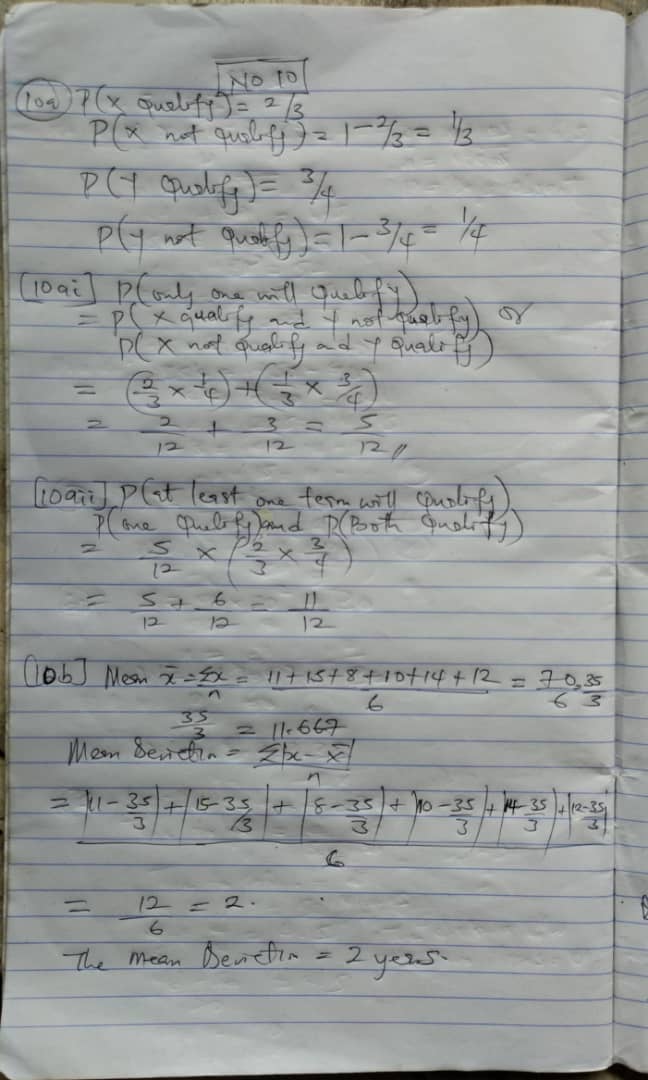 NO 10
10a) P(X qualify) = 2/3
P(X not qualify) = 1 - 2/3 = 1/3
P(Y qualify) = 3/4
P(Y not qualify) = 1 - 3/4 = 1/4
[10ai] P(only one will qualify)
= P(X qualify and Y not qualify) or
P(X not qualify and Y qualify)
= (2/3 × 1/4) + (1/3 × 3/4)
= 2/12 + 3/12 = 5/12 //
[10aii] P(at least one team will qualify)
P(one qualify) and P(Both qualify)
= 5/12 × (2/3 × 3/4)
= 5/12 + 6/12 = 11/12
[10b] Mean x̄ = Σx/n = (11+15+8+10+14+12)/6 = 70/6, 35/3
35/3 = 11.667
Mean Deviation = Σ|x - x̄|/n
= (|11 - 35/3| + |15 - 35/3| + |8 - 35/3| + |10 - 35/3| + |14 - 35/3| + |12 - 35/3|)/6
= 12/6 = 2.
The mean Deviation = 2 years.